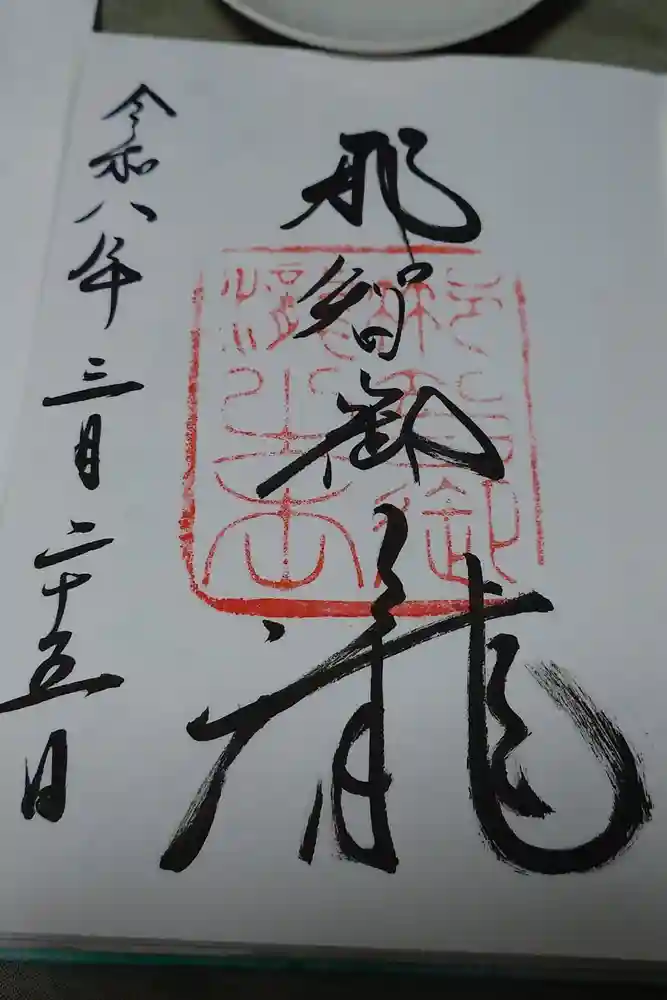 那智御瀧
令和八年三月二十五日